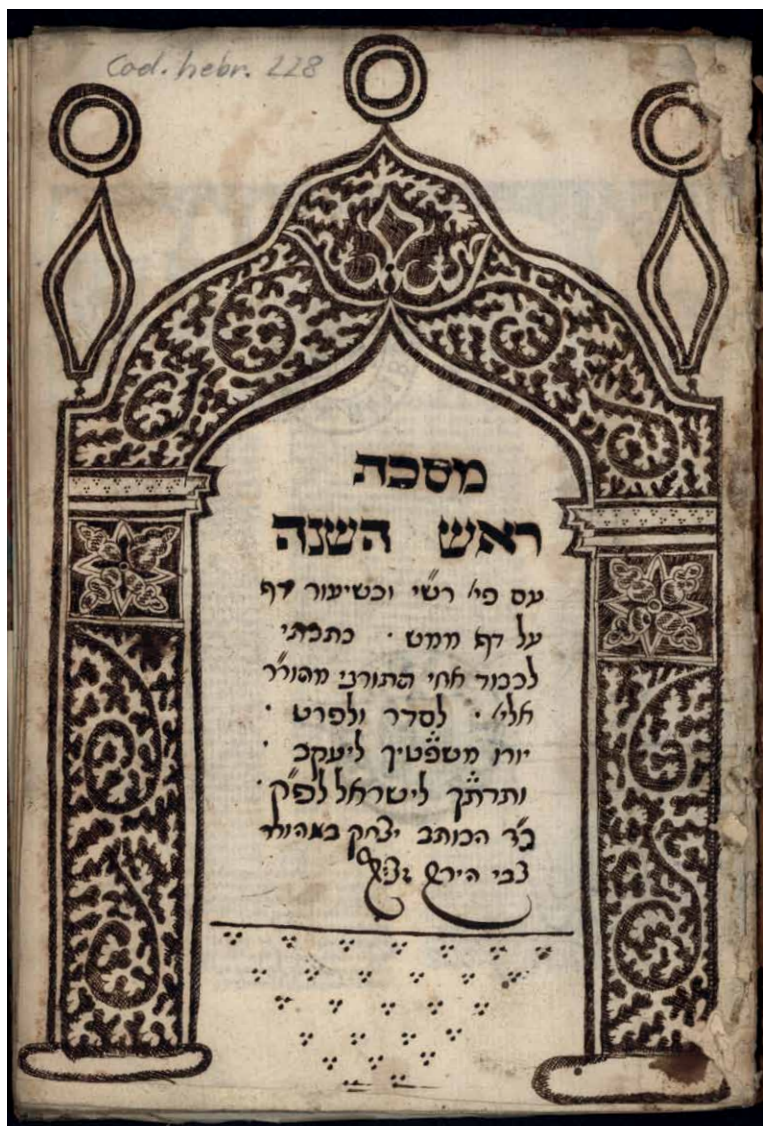 Cod. hebr. 228
מסכת
ראש השנה
עם פי' רש"י ובשיעור דף
על דף ממש · כתבתי
לכבוד אחי התורני מהור"ר
אלי' · לסדר ולפרט ·
יורו משפטיך ליעקב ·
ותרתך לישראל לפ"ק ·
הכותב יצחק
צבי הירש